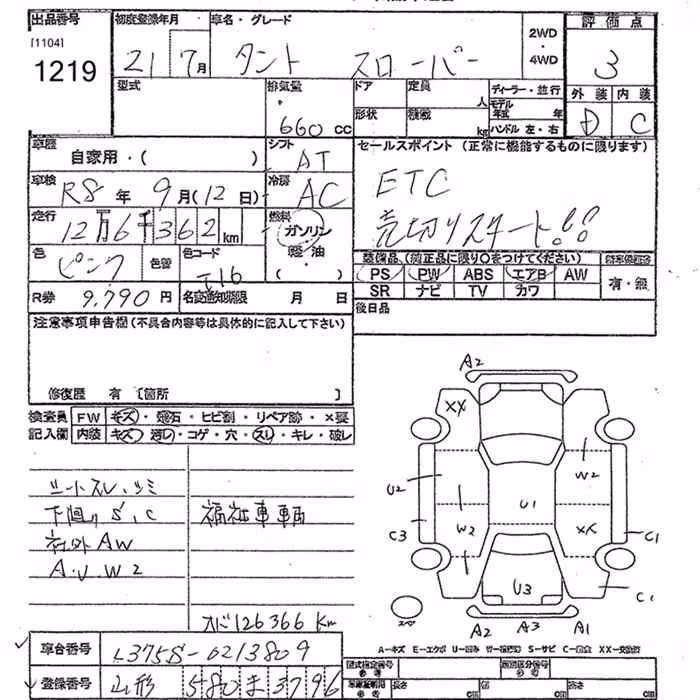 出品番号 初度登録年月 車名・グレード 2WD ・ 4WD 評価点
[1104]
1219 21 7月 タント スローパー 3
型式 排気量 ドア 定員 人 ディーラー・並行 外装 内装
660 CC 形状 積載 kg モデル年式 年 ハンドル 左・右 D C
車歴 自家用・( ) シフト AT セールスポイント (正常に機能するものに限ります)
車検 R8年 9月(12日) 冷房 AC ETC
走行 12万6千362km 燃料 ガソリン 売切りスタート!!
軽油
色 ピンク 色替 色コード T16 ( ) 装備品 (純正品に限り○をつけてください)
PS PW ABS エアB AW 有・無
R券 9.790円 名変通知期限 月 日 SR ナビ TV カワ
注意事項申告欄 (不具合内容等は具体的に記入して下さい) 後日品
修復歴 有 [箇所 ]
検査員 FW キズ・飛石・ヒビ割・リペア跡・×要
記入欄 内装 キズ・汚レ・コゲ・穴・スレ・キレ・破レ
シートスレ、シミ
下廻り S、C 福祉車輌
社外 AW
A.U.W2
スペア
メーター 126366 Km
車台番号 L375S-0213809
登録番号 山形 580 ま 3796
A2
XX
W2
U2
U1
C3
W2
XX
C1
U3
C1
A2 A3 A1
A-キズ E-エクボ U-凹み W-補修跡 S-サビ C-腐食 XX-交換済
型式指定番号 類別区分番号
長さ 幅 高さ